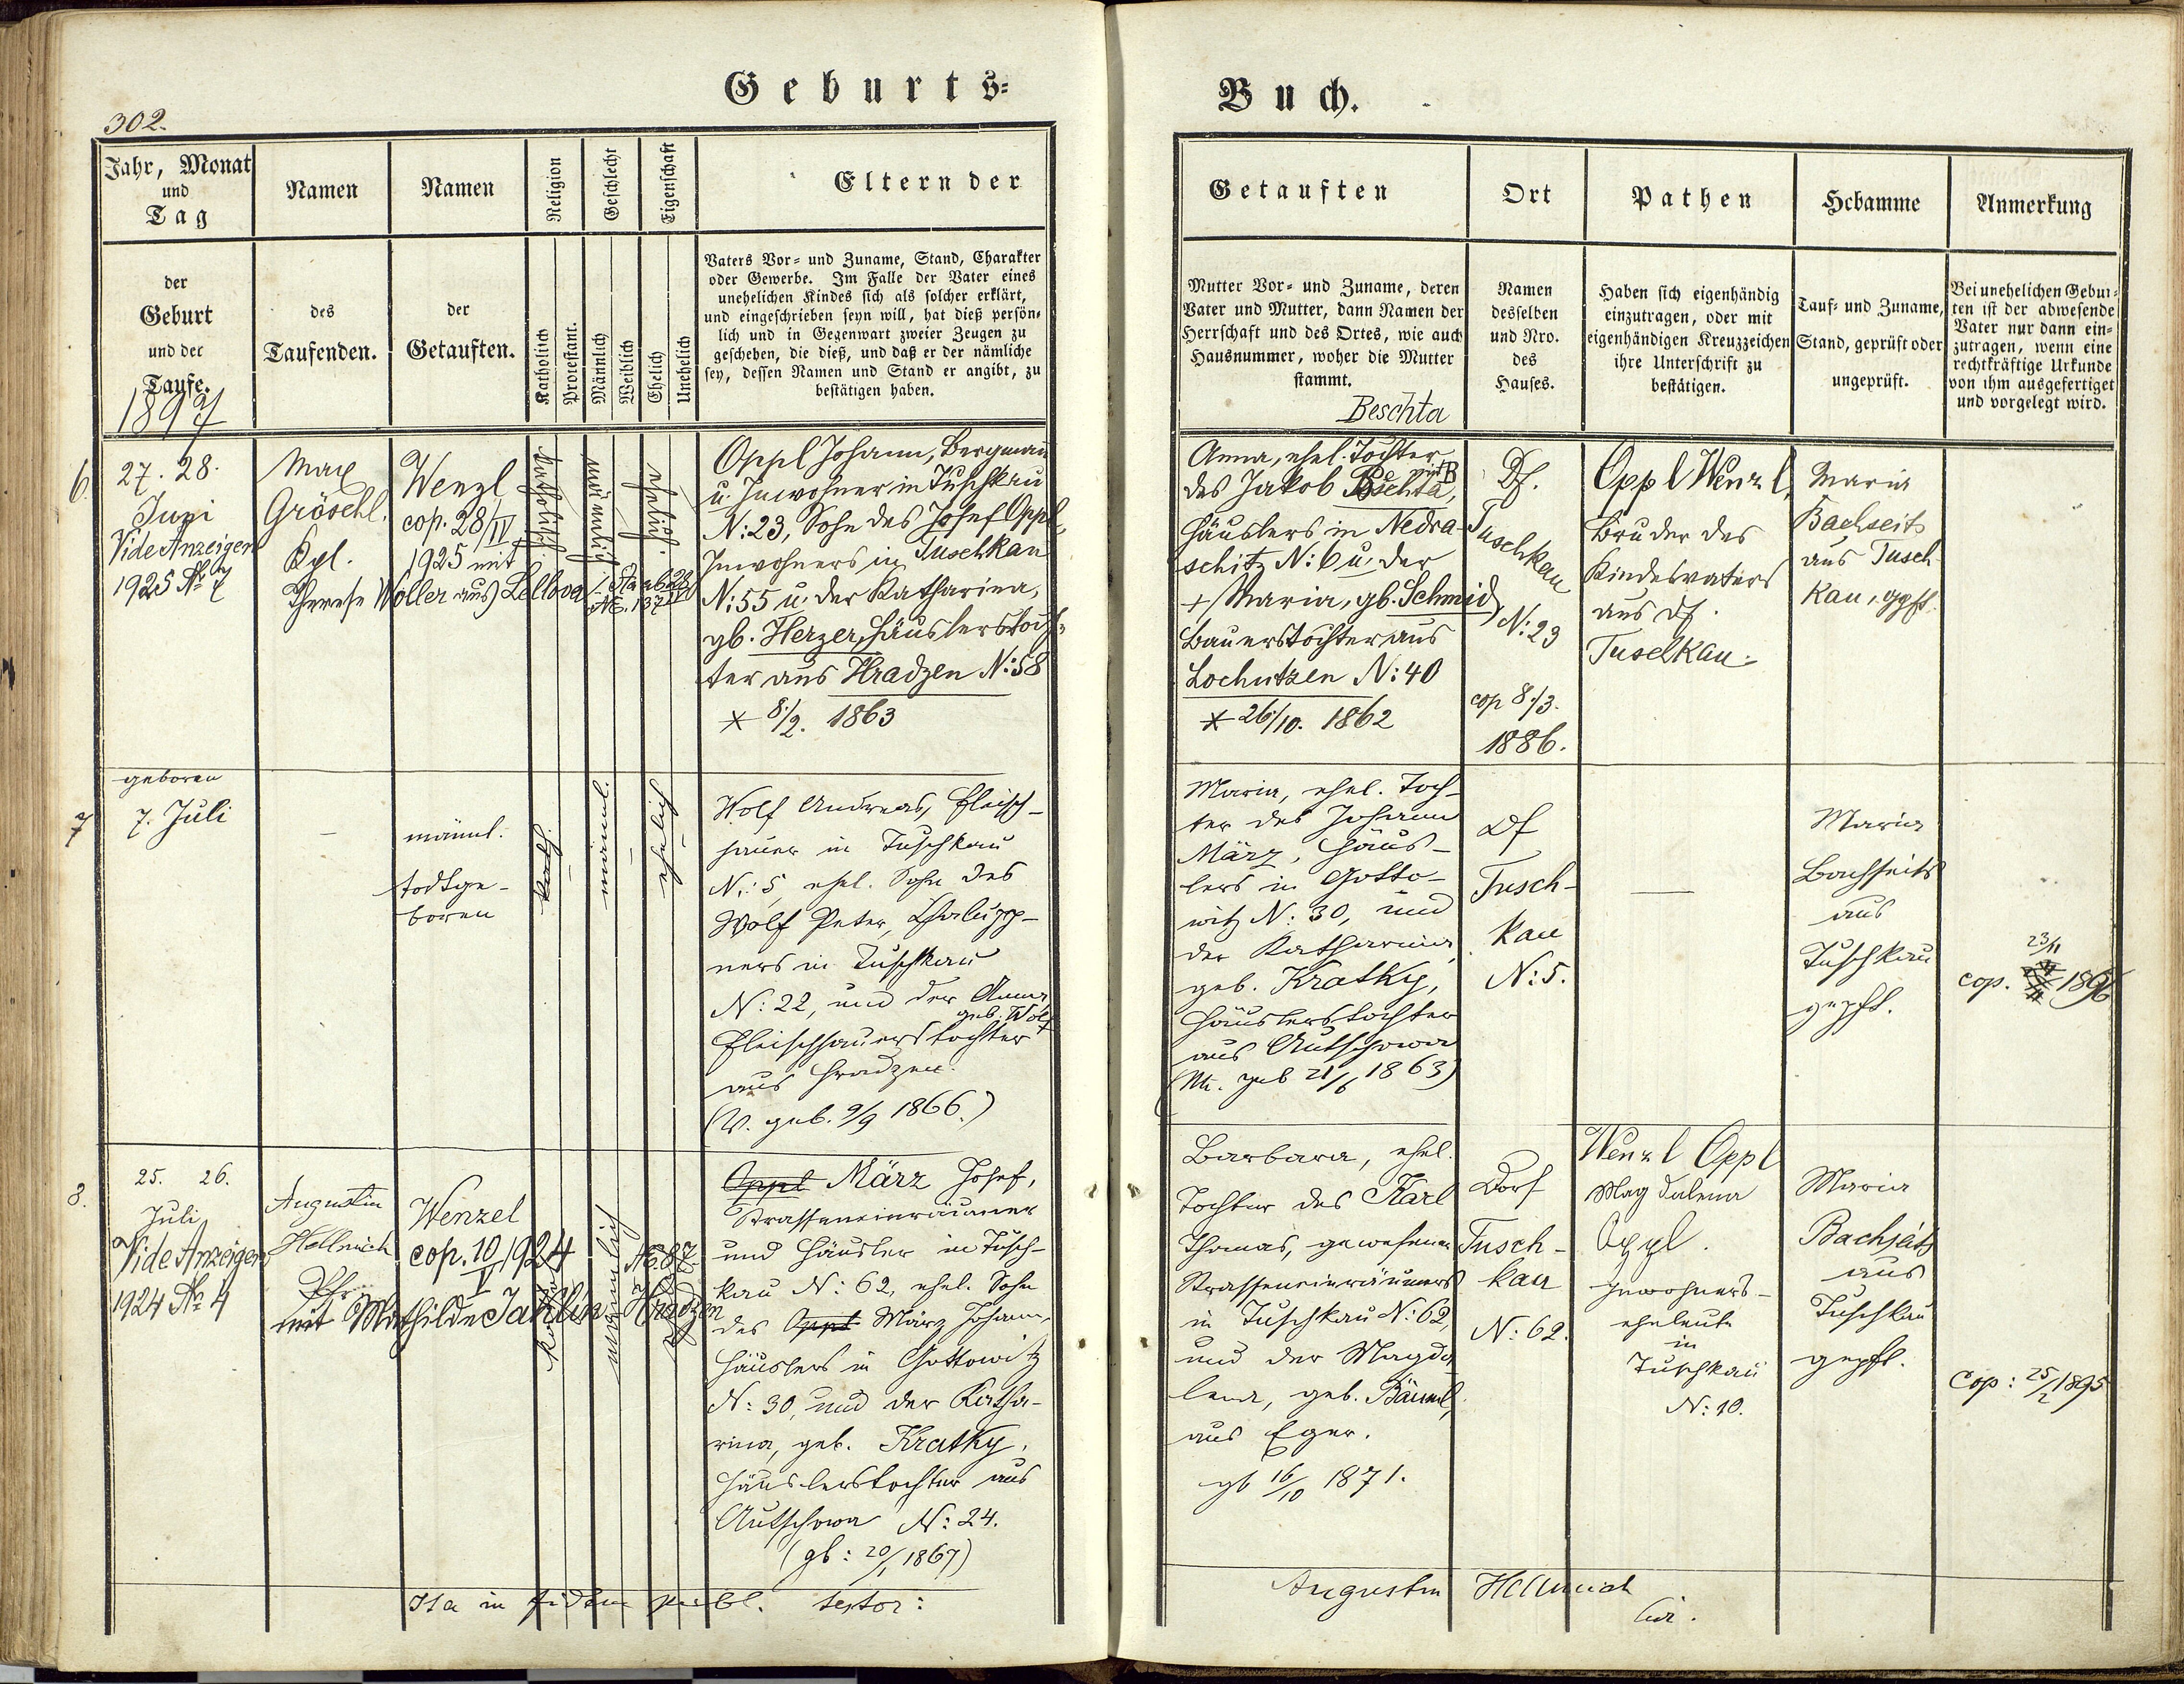 Geburts=
Buch.
302.
Jahr, Monat
und
Tag
der
Geburt
und der
Taufe.
1897
Namen
des
Taufenden.
Namen
der
Getauften.
Religion
Katholisch
Protestant.
Geschlecht
Männlich
Weiblich
Eigenschaft
Ehelich
Unehelich
Eltern der
Vaters Vor= und Zuname, Stand, Charakter
oder Gewerbe. Im Falle der Vater eines
unehelichen Kindes sich als solcher erklärt,
und eingeschrieben seyn will, hat dieß persön=
lich und in Gegenwart zweier Zeugen zu
geschehen, die dieß, und daß er der nämliche
sey, dessen Namen und Stand er angibt, zu
bestätigen haben.
Getauften
Mutter Vor= und Zuname, deren
Vater und Mutter, dann Namen der
Herrschaft und des Ortes, wie auch
Hausnummer, woher die Mutter
stammt.
Ort
Namen
desselben
und Nro.
des
Hauses.
Pathen
Haben sich eigenhändig
einzutragen, oder mit
eigenhändigen Kreuzzeichen
ihre Unterschrift zu
bestätigen.
Hebamme
Tauf= und Zuname,
Stand, geprüft oder
ungeprüft.
Anmerkung
Bei unehelichen Gebur=
ten ist der abwesende
Vater nur dann ein=
zutragen, wenn eine
rechtkräftige Urkunde
von ihm ausgefertiget
und vorgelegt wird.
6.
27. 28.
Juni
Vide Anzeigen
1925 No 7
Max
Gröschl.
Kpl.
Wenzl
cop. 28/IV
1925 mit
Therese Woller aus Lellova
katholisch.
männlich
ehelich.
Oppl Johann, Bergmann
u. Inwohner in Tuschkau
N: 23, Sohn des Josef Oppl,
Inwohners in Tuschkau
N: 55 u. der Katharina,
gb. Herzer, Häuslerstoch=
ter aus Hradzen N: 58
* 8./2. 1863
Beschta
Anna, ehel. Tochter
des Jakob Peschta,
Häuslers in Nedra-
schitz N: 6 u. der
+ Maria, gb. Schmid,
Bauerstochter aus
Lochutzen N: 40
* 26./10. 1862
Df.
Tuschkau
N: 23
cop 8./3.
1886.
Oppl Wenzl,
Bruder des
Kindesvaters
aus Df.
Tuschkau.
Maria
Bachseits
aus Tusch
kau, gpft.
7
geboren
7. Juli
männl.
todtge-
boren
kath.
männl.
ehelich
Wolf Andreas, Fleisch-
hauer in Tuschkau
N: 5, ehel. Sohn des
Wolf Peter, Chalupp-
ners in Tuschkau
N: 22, und der Anna
geb. Wolf
Fleischhauerstochter
aus Hradzen.
(V. geb. 9/9 1866.)
Maria, ehel. Toch-
ter des Johann
März, Häus-
lers in Gotto-
witz N: 30, und
der Katharina,
geb. Kratky,
Häuslerstochter
aus Autschowa
(M. geb 21/6 1863)
Df
Tusch-
kau
N: 5.
Maria
Bachseits
aus
Tuschkau
gepft.
23/11
cop. 1896
8.
25. 26.
Juli
Vide Anzeigen
1924 No 4
Augustin
Hellmich
Pfr.
Wenzel
cop. 10/V 1924
mit Mathilde Jaklin Hradzen
No. 87.
männlich
Oppl März Josef,
Strasseneinräumer
und Häusler in Tusch-
kau N: 62, ehel. Sohn
des Oppl März Johann,
Häuslers in Gottowitz
N: 30, und der Katha-
rina, geb. Kratky,
Häuslerstochter aus
Autschowa N: 24.
(gb: 20/1 1867)
Barbara, ehel.
Tochter des Karl
Thomas, gewesenen
Strasseneinräumers
in Tuschkau N: 62,
und der Magda
lena, geb. Bäuml,
aus Eger.
gb 16/10 1871.
Dorf
Tusch-
kau
N: 62.
Wenzl Oppl
Magdalena
Oppl.
Inwohners-
eheleute
in
Tuschkau
N: 10.
Maria
Bachseits
aus
Tuschkau
gepft.
Cop: 25/2 1895
Ita in fidem publ. testor:
Augustin Hellmich